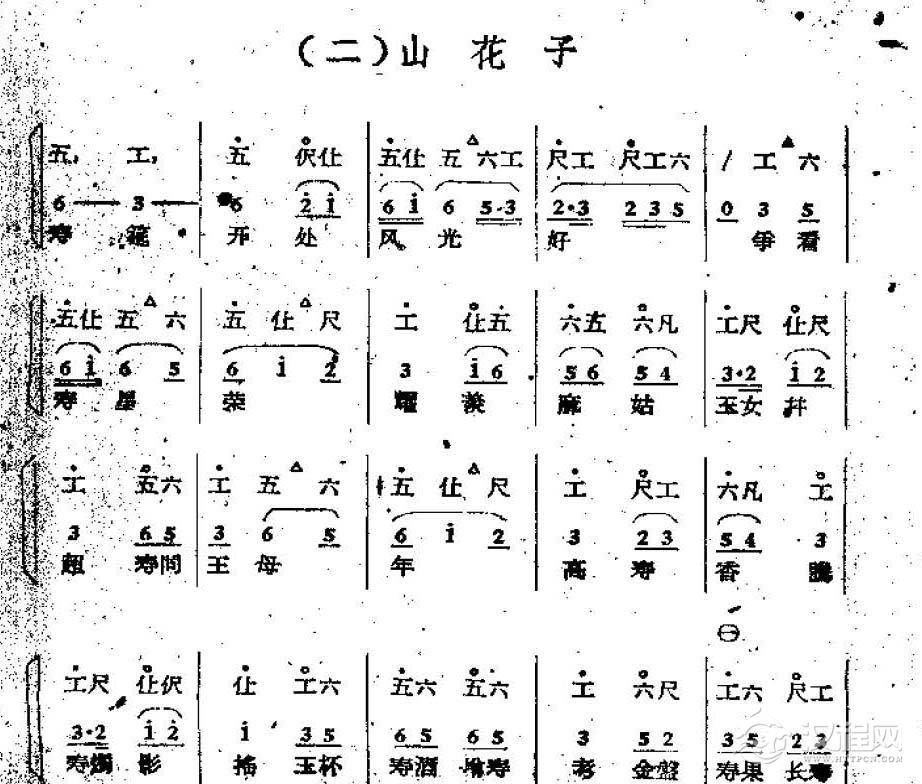 （二）山花子
五, 工, 五 伬仩 五仩 五 六工 尺工 尺工六 / 工 六
6 3 6 2 1 6 1 6 5·3 2·3 2 3 5 0 3 5
寿 筵 开 处 风 光 好 争 看
五仩 五 六 五 仩 尺 工 仩五 六五 六凡 工尺 仩尺
6 1 6 5 6 1 2 3 1 6 5 6 5 4 3·2 1 2
寿 星 荣 耀 羨 麻 姑 玉女 并
工 五六 工 五 六 五 仩 尺 工 尺工 六凡 工
3 6 5 3 6 5 6 1 2 3 2 3 5 4 3
超 寿問 王 母 年 高 寿 香 騰
工尺 仩伬 仩 工六 五六 五六 工 六尺 工六 尺工
3·2 1 2 1 3 5 6 5 6 5 3 5 2 3 5 2 3
寿燭 影 搖 玉杯 寿酒 增寿 考 金盤 寿果 长寿
汉程网
HTTPCN.COM